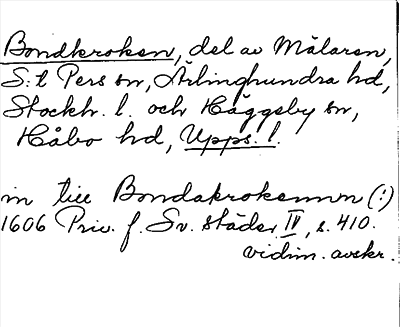 Bondkroken, del av Mälaren,
S:t Pers sn, Ärlinghundra hd,
Stockh. l. och Häggeby sn,
Håbo hd, Upps. l.
in till Bondakrokennn (:)
1606 Priv. f. Sv. städer IV, s. 410.
vidim. avskr.